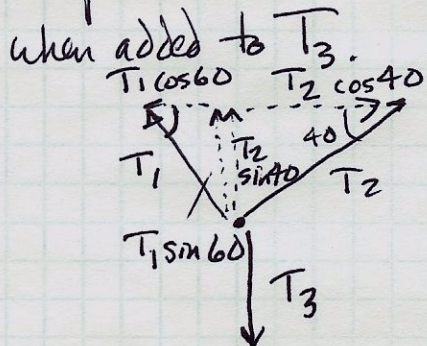 when added to T₃.
T₁cos60 T₂ cos40
40
T₁ T₂ sin40 T₂
T₁sin60
T₃